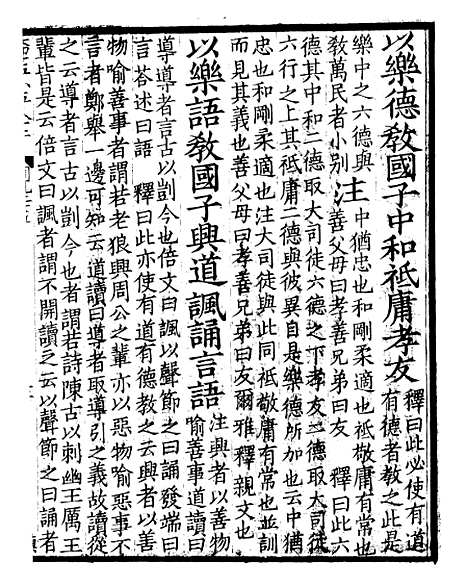 以樂德教國子中和祗庸孝友 釋曰此必使有道
有德者教之此是
樂中之六德與
教萬民者小別 注 中猶忠也和剛柔適也祗敬庸有常也
善父母曰孝善兄弟曰友 釋曰此六
德其中和二德取大司徒六德之下孝友二德取大司徒
六行之上其祗庸二德與彼異自是樂德所加也云中猶
忠也和剛柔適也注大司徒與此同祗敬庸有常也並訓
而見其義也善父母曰孝善兄弟曰友爾雅釋親文也
以樂語教國子興道諷誦言語 注興者以善物
喻善事道讀曰
導導者言古以剴今也倍文曰諷以聲節之曰誦發端曰
言荅述曰語 釋曰此亦使有道有德教之云興者以善
物喻善事者謂若老狼興周公之輩亦以惡物喻惡事不
言者鄭舉一邊可知云道讀曰導者取導引之義故讀從
之云導者言古以剴今也者謂若詩陳古以刺幽王厲王
輩皆是云倍文曰諷者謂不開讀之云以聲節之曰誦者